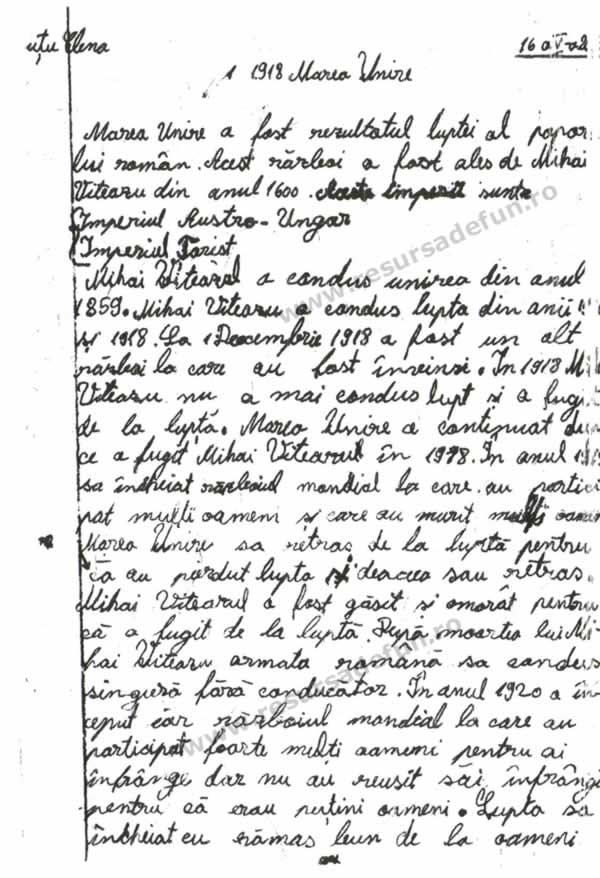 uțu Elena
16 a V-a2
1 1918 Marea Unire
Marea Unire a fost rezultatul luptei al popor
lui român. Acest rărleoi a foost ales de Mihai
Viteazu din anul 1600. Aceste imperii sunt
Imperiul Austro-Ungar
Imperiul Țarist
Mihai Viteazul a condus unirea din anul
1859. Mihai Viteazu a condus lupta din anii
și 1918. La 1 Deecembrie 1918 a fost un alt
război la care au fost învinsi. In 1918 Mi
Viteazu nu a mai condus lupt și a fugi
de la luptă. Marea Unire a continuat du
ce a fugit Mihai Viteazul în 1978. În anul 19
sa încheiat războiul mondial la care au partici
pat mulți oameni și care au murit mulți oamen
Marea Unire sa retras de la luptă pentru
că au pərdut lupta și deaceea sau retras.
Mihai Viteazul a fost găsit și omorât pentru
că a fugit de la luptă. După moartea lui Mi-
hai Viteazu armata română sa condus
singură fără conducător. În anul 1920 a în
ceput iar războiul mondial la care au
participat foarte mulți oameni pentru ai
înfrânge dar nu au reusit săi înfrângă
pentru că erau puțini oameni. Lupta sa
încheiat cu rămas leun de la oameni
www.resursadefun.ro
www.resursadefun.ro